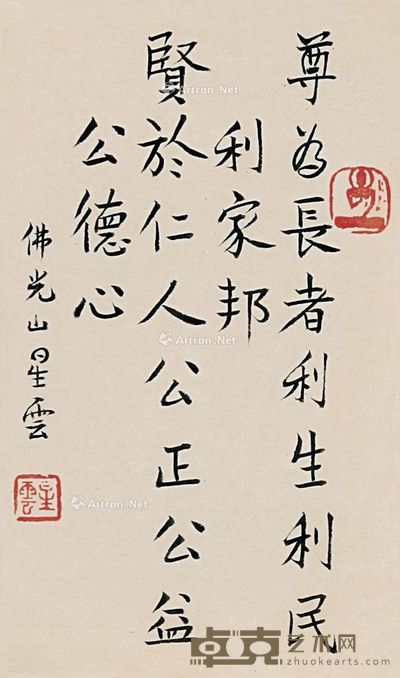 尊為長者利生利民
利家邦
賢於仁人公正公益
公德心
佛光山星雲
星雲
Artron.Net
Artron.Net
Artron.Net
Artron.Net
卓克艺术网
zhuokearts.com